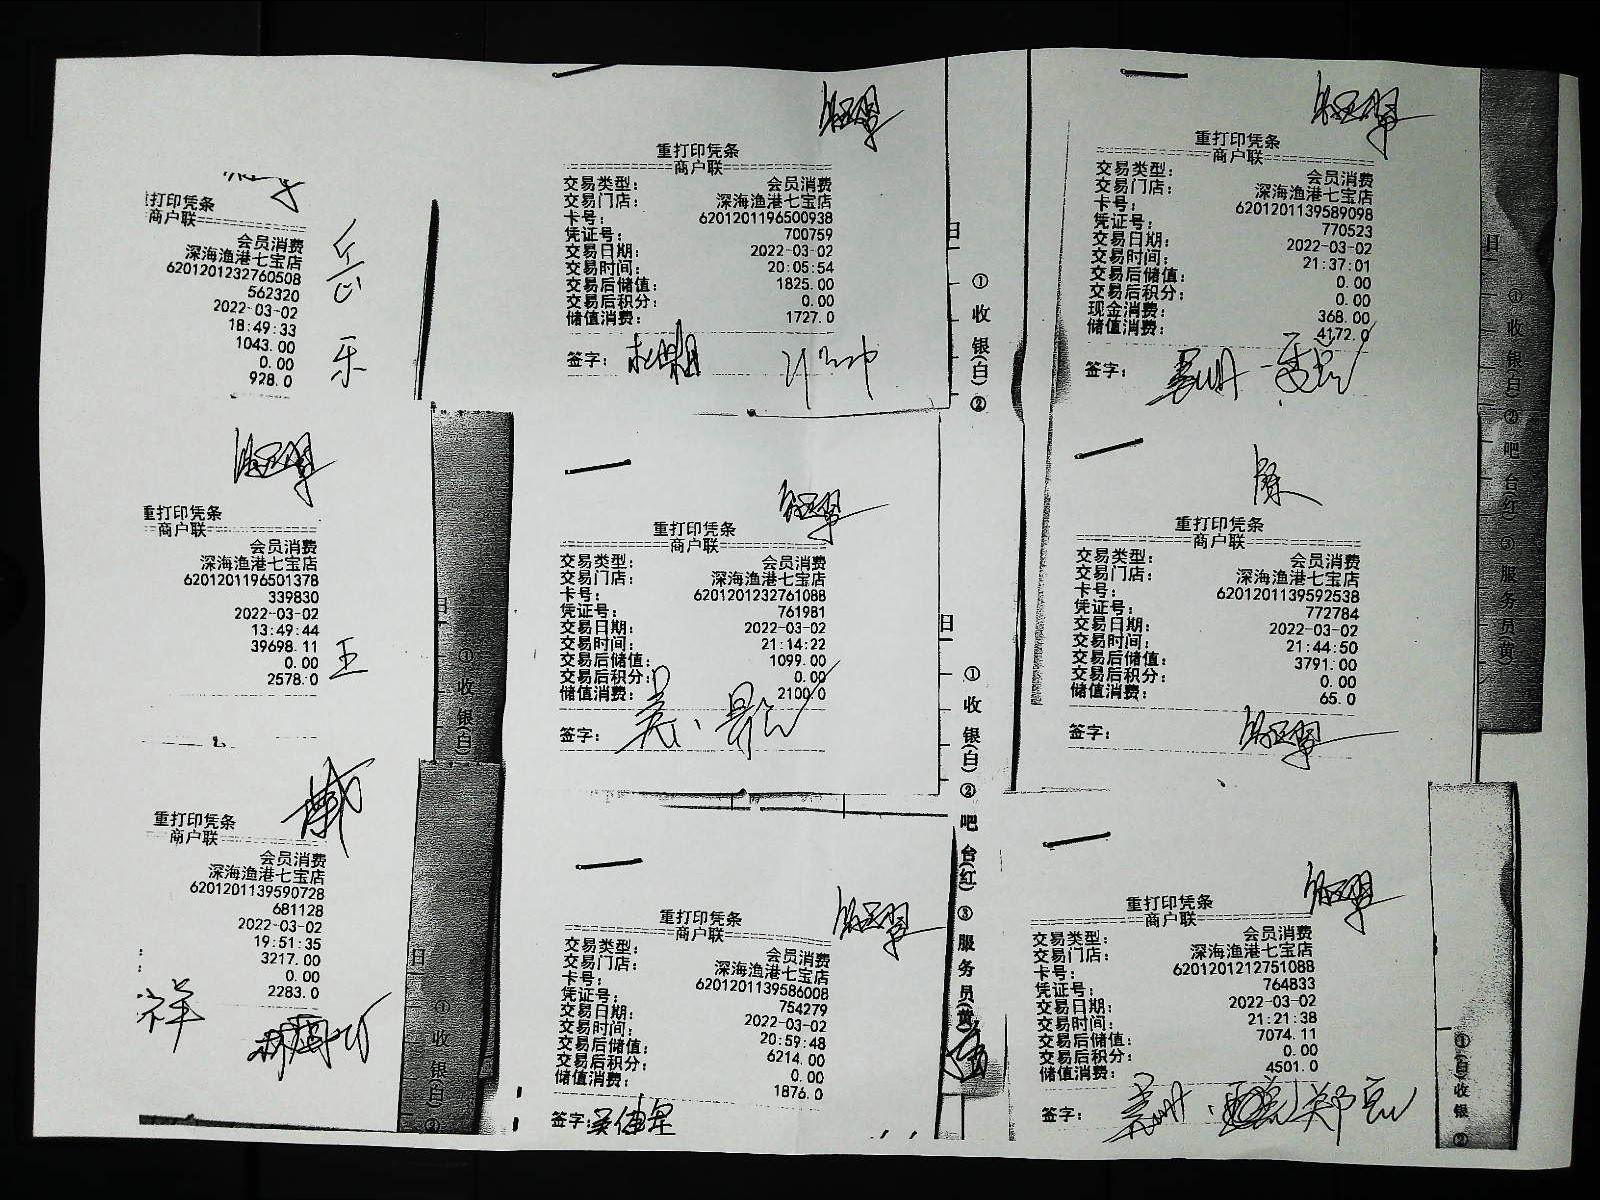 重打印凭条
商户联
会员消费
深海渔港七宝店
6201201232760508
562320
2022-03-02
18:49:33
1043.00
0.00
928.0
岳
乐
重打印凭条
商户联
会员消费
深海渔港七宝店
6201201196501378
339830
2022-03-02
13:49:44
39698.11
0.00
2578.0
王
戴
重打印凭条
商户联
会员消费
深海渔港七宝店
6201201139590728
681128
2022-03-02
19:51:35
3217.00
0.00
2283.0
祥
重打印凭条
商户联
交易类型: 会员消费
交易门店: 深海渔港七宝店
卡号: 6201201196500938
凭证号: 700759
交易日期: 2022-03-02
交易时间: 20:05:54
交易后储值: 1825.00
交易后积分: 0.00
储值消费: 1727.0
签字:
重打印凭条
商户联
交易类型: 会员消费
交易门店: 深海渔港七宝店
卡号: 6201201232761088
凭证号: 761981
交易日期: 2022-03-02
交易时间: 21:14:22
交易后储值: 1099.00
交易后积分: 0.00
储值消费: 2100.0
签字:
重打印凭条
商户联
交易类型: 会员消费
交易门店: 深海渔港七宝店
卡号: 6201201139586008
凭证号: 754279
交易日期: 2022-03-02
交易时间: 20:59:48
交易后储值: 6214.00
交易后积分: 0.00
储值消费: 1876.0
签字:
重打印凭条
商户联
交易类型: 会员消费
交易门店: 深海渔港七宝店
卡号: 6201201139589098
凭证号: 770523
交易日期: 2022-03-02
交易时间: 21:37:01
交易后储值: 0.00
交易后积分: 0.00
现金消费: 368.00
储值消费: 4172.0
签字:
陈
重打印凭条
商户联
交易类型: 会员消费
交易门店: 深海渔港七宝店
卡号: 6201201139592538
凭证号: 772784
交易日期: 2022-03-02
交易时间: 21:44:50
交易后储值: 3791.00
交易后积分: 0.00
储值消费: 65.0
签字:
重打印凭条
商户联
交易类型: 会员消费
交易门店: 深海渔港七宝店
卡号: 6201201212751088
凭证号: 764833
交易日期: 2022-03-02
交易时间: 21:21:38
交易后储值: 7074.11
交易后积分: 0.00
储值消费: 4501.0
签字:
①收银(白)②
①收银(白)
①收银(白)②
①收银(白)②吧台(红)③服务员(黄)
①收银(白)②吧台(红)③服务员(黄)
日
日
日
日
日